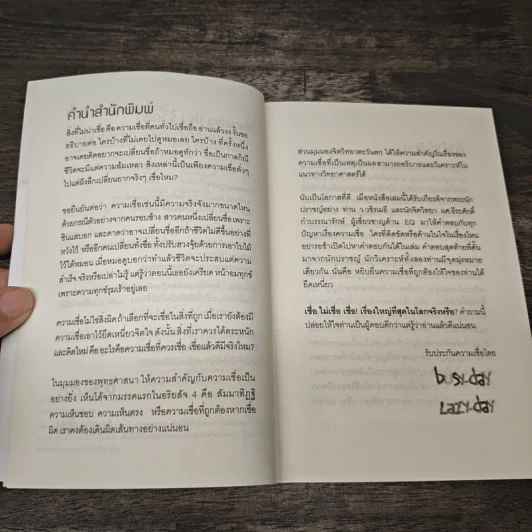 คำนำสำนักพิมพ์
สิ่งที่ไม่น่าเชื่อ คือ ความเชื่อที่คนทั่วไปเชื่อถือ อ่านแล้วงง งั้นขอ
อธิบายต่อ ใครบ้างที่ไม่เคยไปดูหมอเลย ใครบ้าง ที่ครั้งหนึ่ง
อาจเคยคิดอยากจะเปลี่ยนชื่อถ้าหมอดูทักว่า ชื่อเป็นกาลกิณี
ชีวิตจะมีแต่ความล้มเหลว สิ่งเหล่านี้เป็นเพียงความเชื่อที่วๆ
ไปแต่ฝังลึกเปลี่ยนยากจริงๆ เชื่อไหม?
ขอยืนยันต่อว่า ความเชื่อเช่นนี้มีความจริงจังมากขนาดไหน
ด้วยกรณีตัวอย่างจากคนรอบข้าง สาวคนหนึ่งเปลี่ยนชื่อเพราะ
ซินแสบอก และคาดว่าอาจเปลี่ยนชื่ออีกถ้าชีวิตไม่ดีขึ้นอย่างที่
หวังไว้ หรืออีกคนเปลี่ยนทั้งชื่อ ทั้งปรับฮวงจุ้ยด้วยการเอาไปไม้
ไว้ใต้หมอน เมื่อหมอดูบอกว่าทำแล้วชีวิตจะประสบแต่ความ
สำเร็จ จริงหรือเปล่าไม่รู้ แต่รู้ว่าตอนนี้เธอยังเครียด หน้าอมทุกข์
เพราะความทุกข์รุมเร้าอยู่เลย
ความเชื่อไม่ใช่สิ่งผิด ถ้าเลือกที่จะเชื่อในสิ่งที่ถูก เมื่อเรายังต้องมี
ความเชื่อเอาไว้ยึดเหนี่ยวจิตใจ ดังนั้น สิ่งที่เราควรได้ตระหนัก
และคิดใหม่ คือ อะไรคือความเชื่อที่ควรเชื่อ เชื่อแล้วดีมีจริงไหม?
ในมุมมองของพุทธศาสนา ให้ความสำคัญกับความเชื่อเป็น
อย่างยิ่ง เห็นได้จากมรรคแรกในอริยสัจ 4 คือ สัมมาทิฏฐิ
ความเห็นชอบ ความเห็นตรง หรือความเชื่อที่ถูกต้องหากเชื่อ
ผิด เราคงต้องเดินผิดเส้นทางอย่างแน่นอน
ส่วนมุมมองจิตวิทยาตะวันตก ได้ให้ความสำคัญในเรื่องของ
ความเชื่อที่เป็นเหตุเป็นผลสามารถอธิบายและวิเคราะห์ใน
แนวทางวิทยาศาสตร์ได้
นับเป็นโอกาสที่ดี เมื่อหนังสือเล่มนี้ได้รับเกียรติจากพระนัก
ปราชญ์อย่าง ท่าน ว.วชิรเมธี และนักจิตวิทยา ผศ.ธีระศักดิ์
กำบรรณารักษ์ ผู้เชี่ยวชาญด้าน EQ มาให้คำตอบกับทุก
ปัญหาเรื่องความเชื่อ ใครที่ติดขัดหรือค้านในใจในเรื่องไหน
อย่ารอช้าเปิดไปหาคำตอบกันได้ในเล่ม คำตอบสุดท้ายที่ตื่น
มาจากนักปราชญ์ นักวิเคราะห์ทั้งสองท่านมีจุดมุ่งหมาย
เดียวกัน นั่นคือ หยิบยื่นความเชื่อที่ถูกต้องให้ใจของท่านได้
ยึดเหนี่ยว
เชื่อ ไม่เชื่อ เชื่อ! เรื่องใหญ่ที่สุดในโลกจริงหรือ? คำถามนี้
ปล่อยให้ใจท่านเป็นผู้ตอบดีกว่าแต่รู้ว่าอ่านแล้วดีแน่นอน
รับประกันความเชื่อโดย
busy-day
LaZy-day